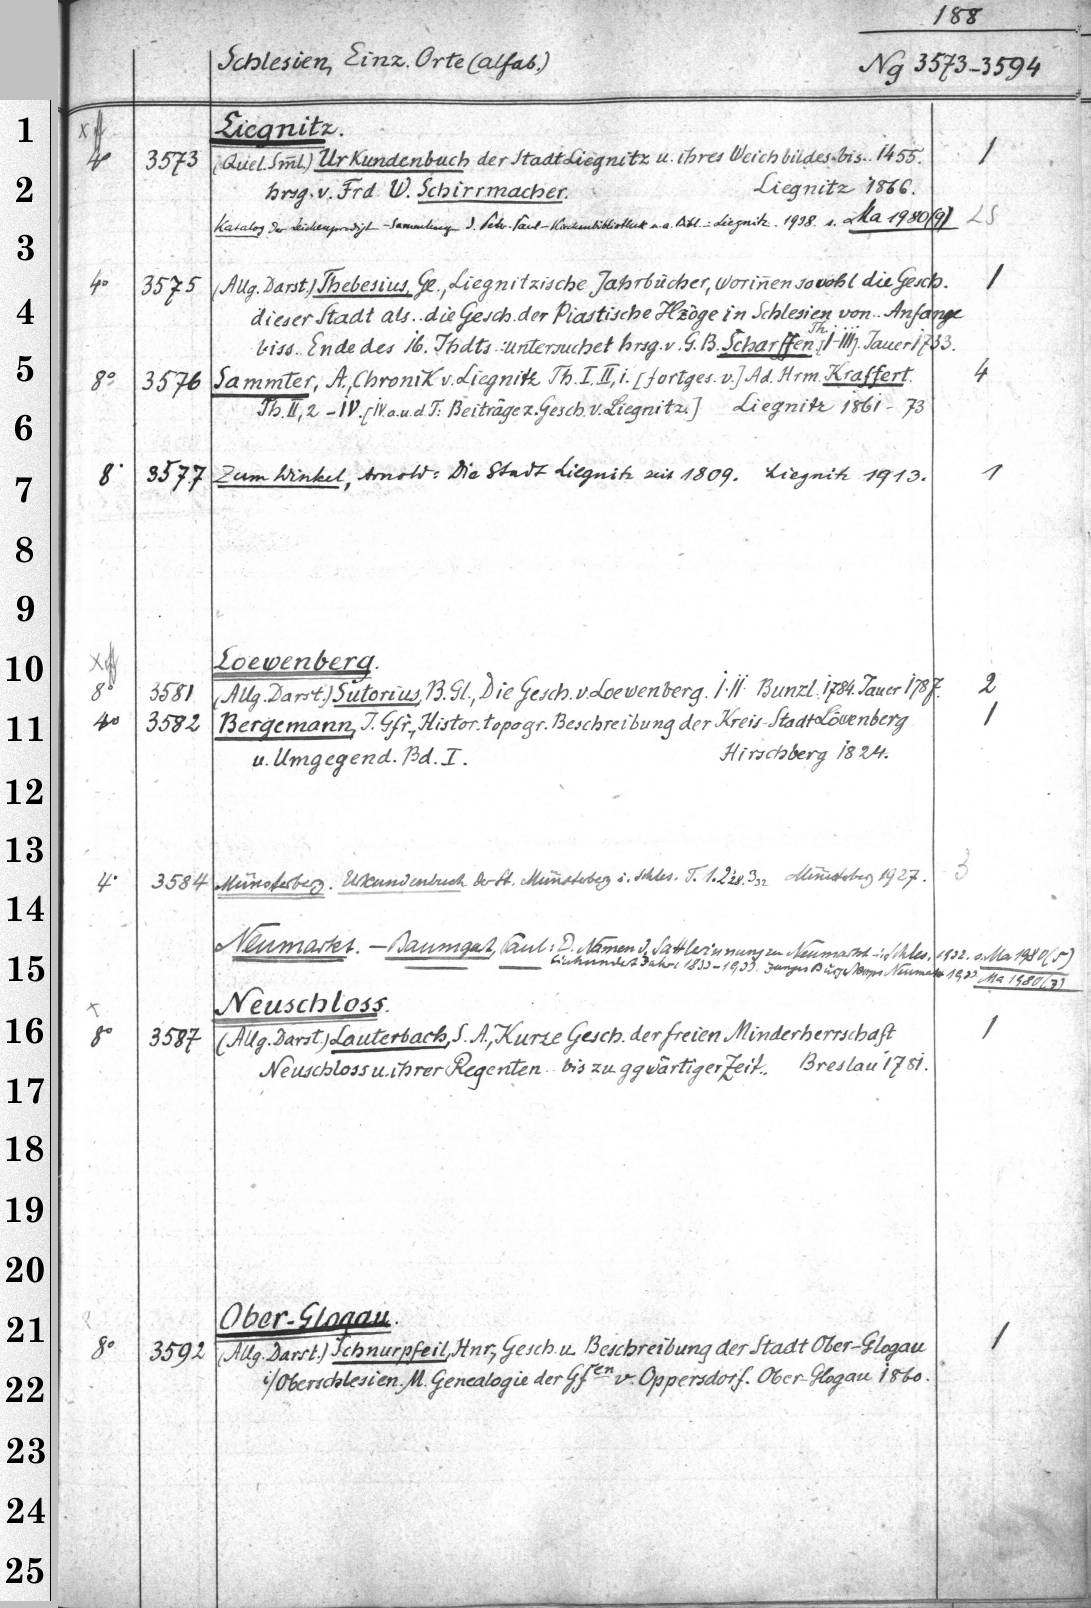 188
Schlesien, Einz. Orte (alfab.)
Ng 3573-3594
1
2
3
4
5
6
7
8
9
10
11
12
13
14
15
16
17
18
19
20
21
22
23
24
25
Liegnitz.
4° 3573 (Quel. Sml.) Urkundenbuch der Stadt Liegnitz u. ihres Weichbildes bis.. 1455. 1
hrsg. v. Frd. W. Schirrmacher. Liegnitz 1866.
Katalog der Leichenpredigt-Sammlung d. Petr. Paul-Kirchenbibliothek u.a. Bibl. i. Liegnitz. 1938. s. Ma 1980(9) LS
4° 3575 (Allg. Darst.) Thebesius, Ge., Liegnitzische Jahrbücher, worinen sowohl die Gesch. 1
dieser Stadt als.. die Gesch. der Piastische Hzöge in Schlesien von.. Anfange
biss.. Ende des 16. Jhdts.. untersuchet hrsg. v. G. B. Scharffen. Th. [I-III]. Jauer 1733.
8° 3576 Sammter, A., Chronik v. Liegnitz Th. I. II, 1. [fortges. v.] Ad. Hrm. Kraffert. 4
Th. II, 2 - IV. [IV. a. u. d. T: Beiträge z. Gesch. v. Liegnitz.] Liegnitz 1861 - 73
8° 3577 Zum Winkel, Arnold: Die Stadt Liegnitz seit 1809. Liegnitz 1913. 1
Loewenberg.
8° 3581 (Allg. Darst.) Sutorius, B. Gl., Die Gesch. v. Loewenberg. I. II. Bunzl. 1784. Jauer 1787. 2
4° 3582 Bergemann, J. Gfr., Histor. topogr. Beschreibung der Kreis-Stadt Löwenberg 1
u. Umgegend. Bd. I. Hirschberg 1824.
4° 3584 Münsterberg. Urkundenbuch der St. Münsterberg i. Schles. T. 1. 2 3 Münsterberg 1927. 3
Neumarkt. - Baumgart, Paul: D. Namen d. in Neumarkt i. Schles. 1932. s. Ma 1980(5)
Einhundert Jahre 1833-1933. Neumarkt 1933 Ma 1980(3)
Neuschloss.
8° 3587 (Allg. Darst.) Lauterbach, S. A., Kurze Gesch. der freien Minderherrschaft 1
Neuschloss u. ihrer Regenten.. bis zu ggwärtiger Zeit.. Breslau 1781.
Ober-Glogau.
8° 3592 (Allg. Darst.) Schnurpfeil, Hnr., Gesch. u. Beschreibung der Stadt Ober-Glogau 1
i/Oberschlesien. M. Genealogie der Gfen v. Oppersdorf. Ober-Glogau 1860.